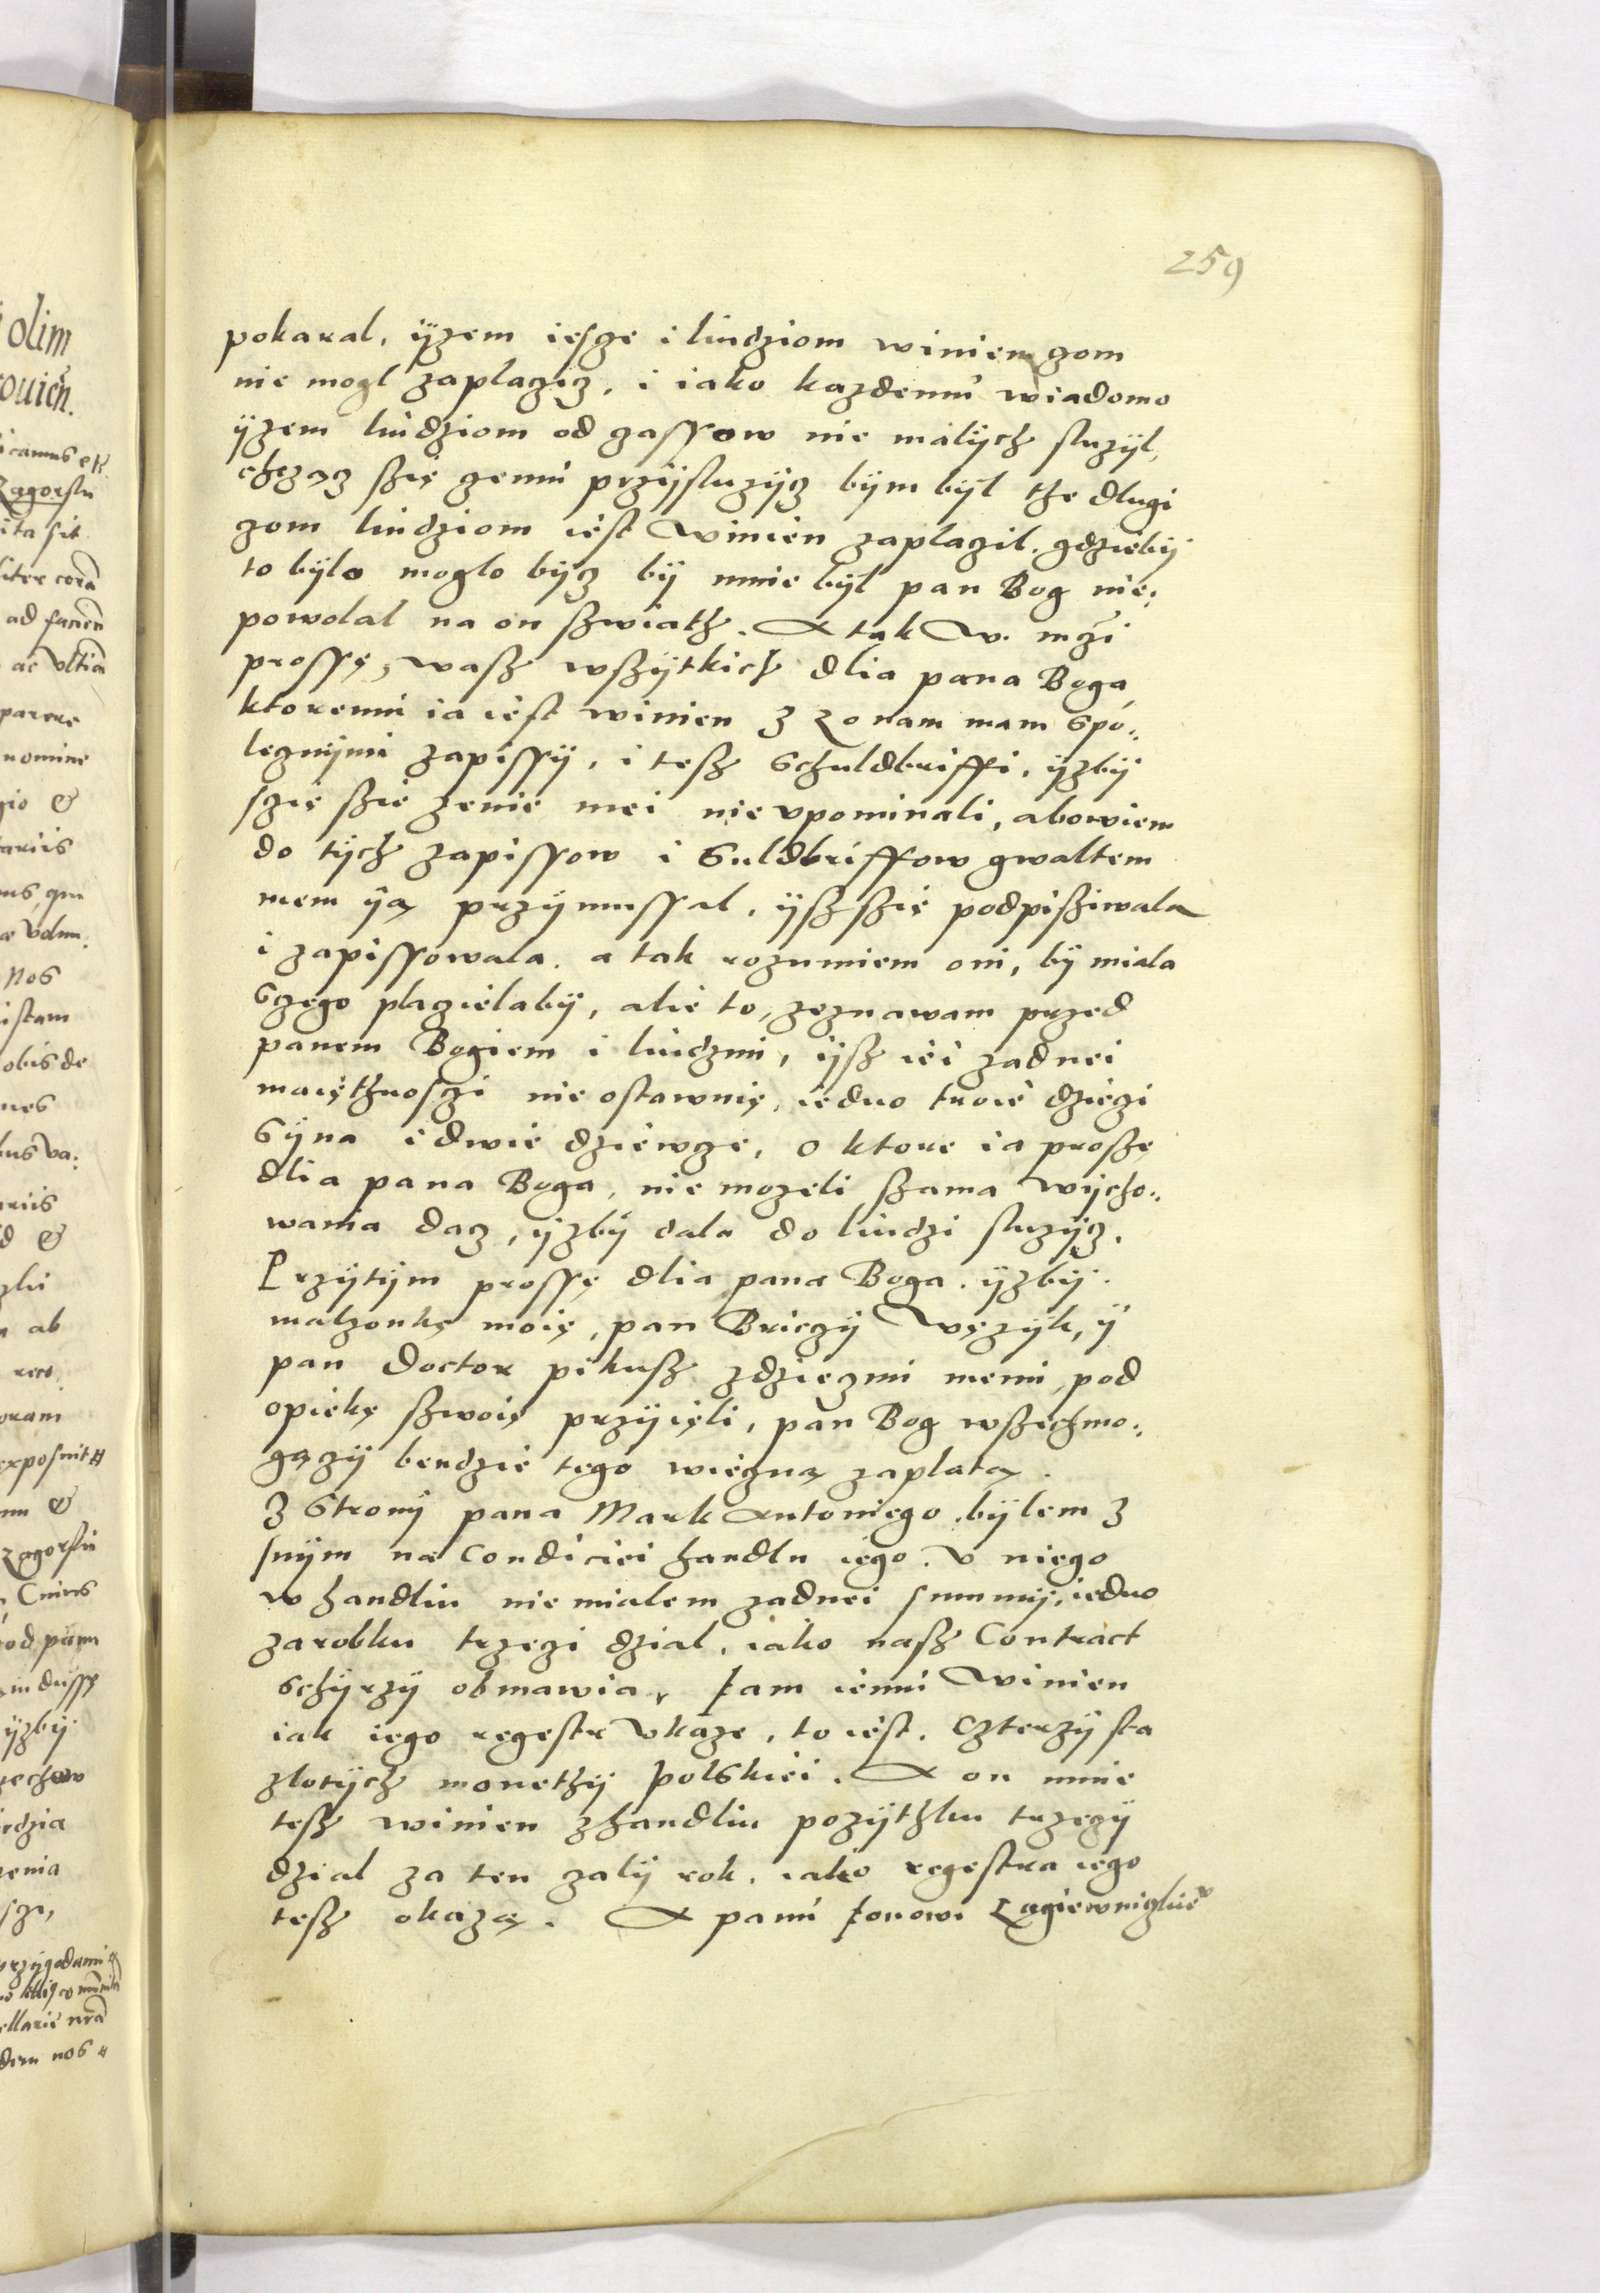 259
pokaral, ijzem iesze i liudziom winien zom
nie mogl zaplaczicz, i iako kazdemu wiadomo
ijzem liudziom od zassow nie malych sluzyl,
chczącz szię zemu przysluzycz bym byl the dlugi
zom liudziom iest winien zaplazil. gdzieby
to bylo moglo bycz by mnie byl pan Bog nie:
powolal na on szwiath. A tak w. mczi
prosse, wasz wszytkich dlia pana Boga,
ktoremu ia iest winien z zonam mam spo:
leznymi zapissy, i tesz Schuldbriffi, yzby
szie szie zenie mei nie upominali, abowiem
do tych zapissow i Suldbriffow gwaltem
mem ią przymussal, ysz szie podpisziwala
i zapissowala. a tak rozumiem oni, by miala
sczego placzielaby, alie to, zeznawam przed
panem Bogiem i liudzmi, ysz iei zadnei
maiethnoszi nie ostawuię, iedno troie dzieczi
Syna i dwie dziewcze, o ktore ia prosze
dlia pana Boga, nie mozeli szama wycho:
wania dacz, yzby dala do liudzi sluzycz.
Przytym prosse dlia pana Boga. yzby
malzonke moię, pan Briczy Wężyk, y
pan doctor pikusz zdzieczmi memi, pod
opieke szwoię przyięli, pan Bog wszechmo:
gączy bendzie tego wieczną zaplatą.
Z Strony pana Mark Antoniego. bylem z
snym na Condiciei handlu iego. v niego
w handliu nie mialem zadnei summy, iedno
zarobku trzeczi dzial, iako nasz Contract
schyrzy obmawia, Iam iemu winien
iak iego regestr vkaze, to iest. Czterzy sta
zlotych monethy polskiei. A on mnie
tesz winien zhandliu pozythku trzeczy
dzial za ten zaly rok. iako regestra iego
tesz okazą. A panu Ionowi Lagiewnizkie